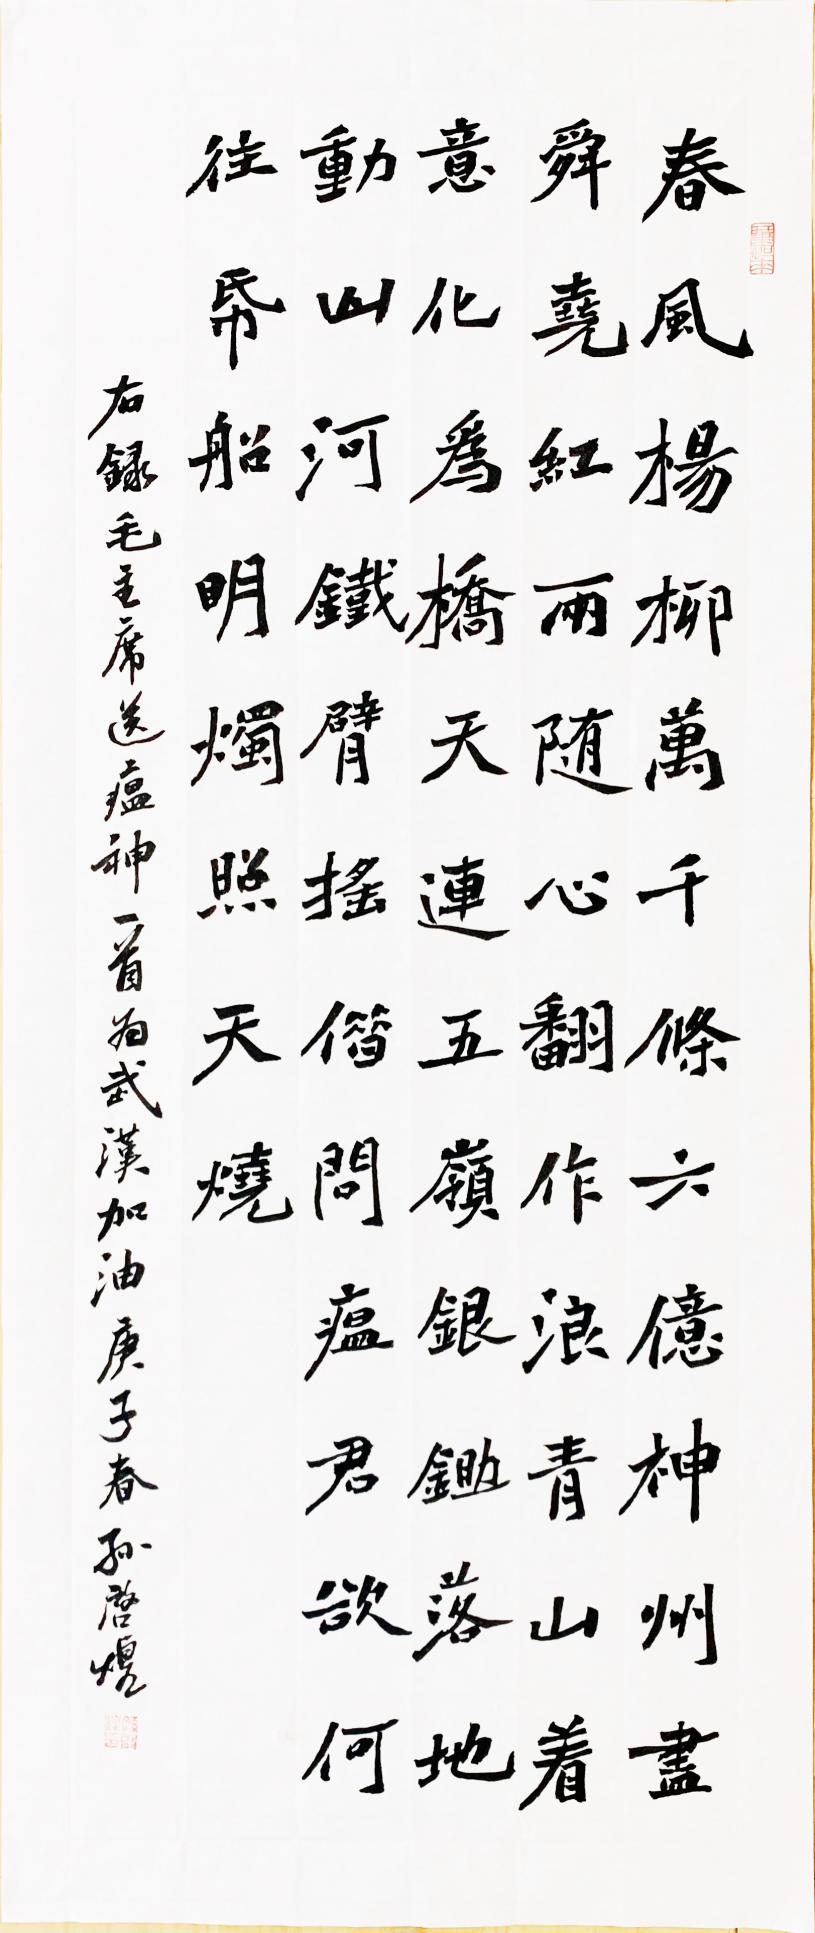 春風楊柳萬千條六億神州盡
舜堯紅雨随心翻作浪青山着
意化為橋天連五嶺銀鋤落地
動山河鐵臂搖借問瘟君欲何
往帋船明燭照天燒
右録毛主席送瘟神一首為武漢加油庚子春孫啓焜